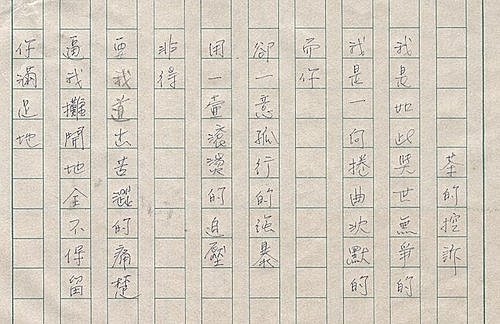 茶的控訴
我是如此與世無爭的
我是一向捲曲沈默的
而你
卻一意孤行的強暴
用一壺滾燙的迫壓
非得
要我道出苦澀的痛楚
逼我攤開地全不保留
你滿足地